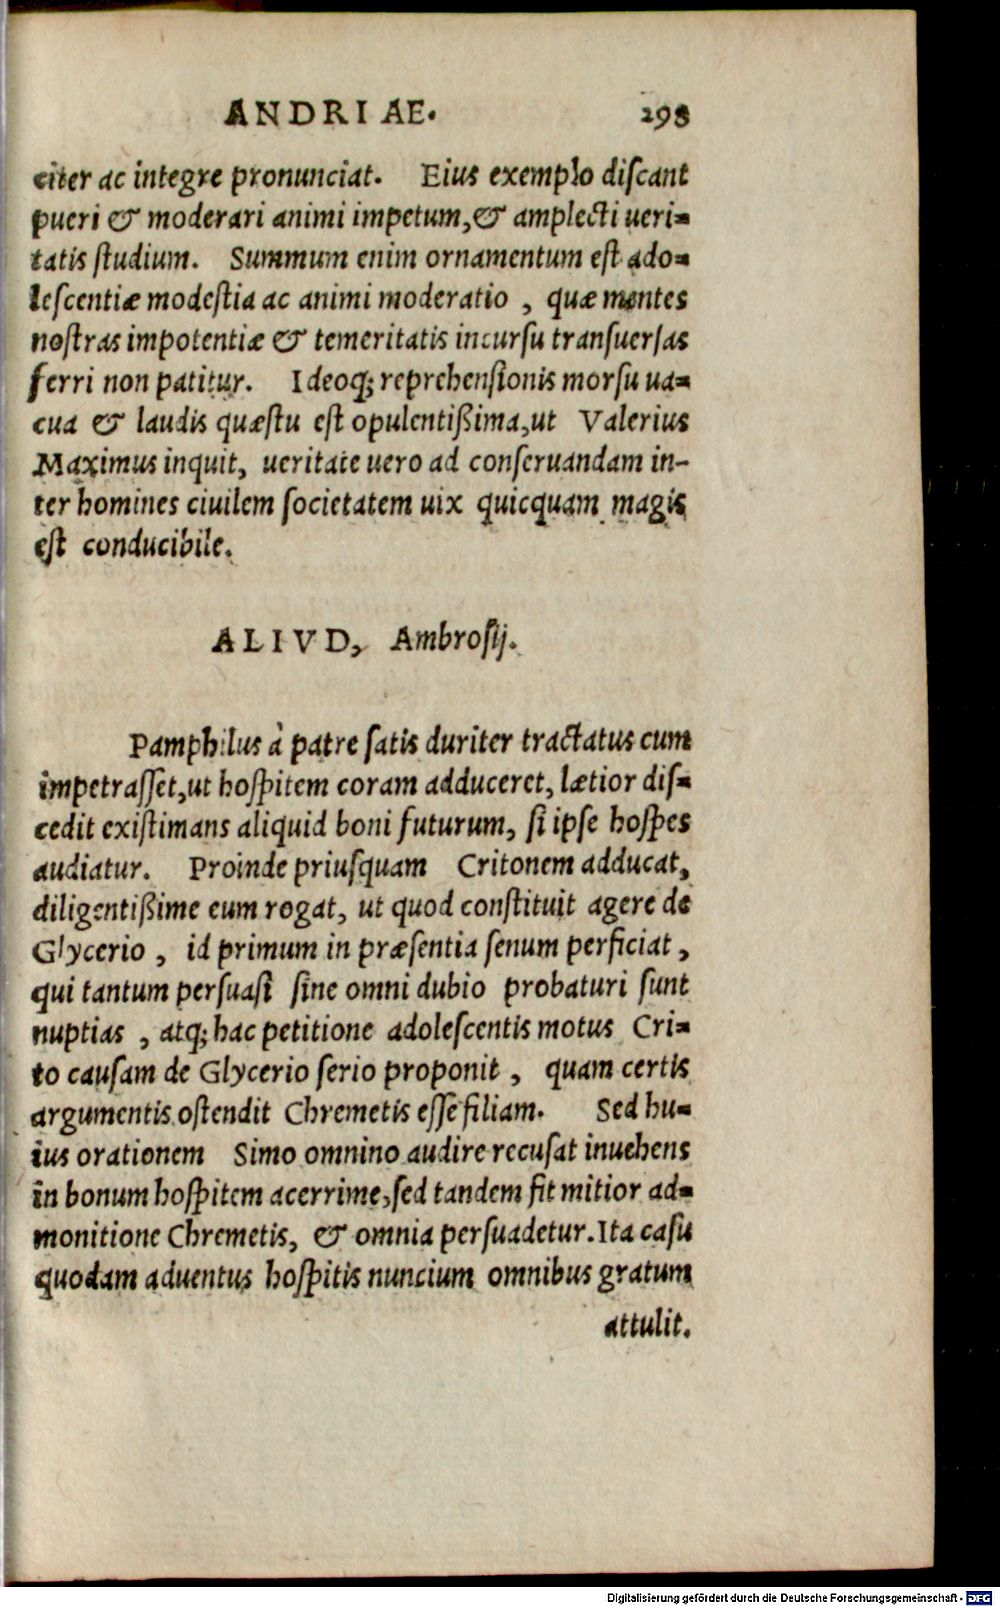 ANDRIAE. 298
citer ac integre pronunciat. Eius exemplo diſcant
pueri & moderari animi impetum, & amplecti ueri=
tatis ſtudium. Summum enim ornamentum eſt ado=
leſcentiæ modeſtia ac animi moderatio, quæ mentes
noſtras impotentiæ & temeritatis incurſu tranſuerſas
ferri non patitur. Ideoq; reprehenſionis morſu ua=
cua & laudis quæſtu eſt opulentißima, ut Valerius
Maximus inquit, ueritate uero ad conſeruandam in-
ter homines ciuilem ſocietatem uix quicquam magis
eſt conducibile.
ALIVD, Ambroſij.
Pamphilus à patre ſatis duriter tractatus cum
impetraſſet, ut hoſpitem coram adduceret, lætior diſ=
cedit exiſtimans aliquid boni futurum, ſi ipſe hoſpes
audiatur. Proinde priuſquam Critonem adducat,
diligentißime eum rogat, ut quod conſtituit agere de
Glycerio, id primum in præſentia ſenum perficiat,
qui tantum perſuaſi ſine omni dubio probaturi ſunt
nuptias, atq; hac petitione adoleſcentis motus Cri=
to cauſam de Glycerio ſerio proponit, quam certis
argumentis oſtendit Chremetis eſſe filiam. Sed hu=
ius orationem Simo omnino audire recuſat inuehens
in bonum hoſpitem acerrime, ſed tandem fit mitior ad=
monitione Chremetis, & omnia perſuadetur. Ita caſu
quodam aduentus hoſpitis nuncium omnibus gratum
attulit.
Digitalisierung gefördert durch die Deutsche Forschungsgemeinschaft - DFG